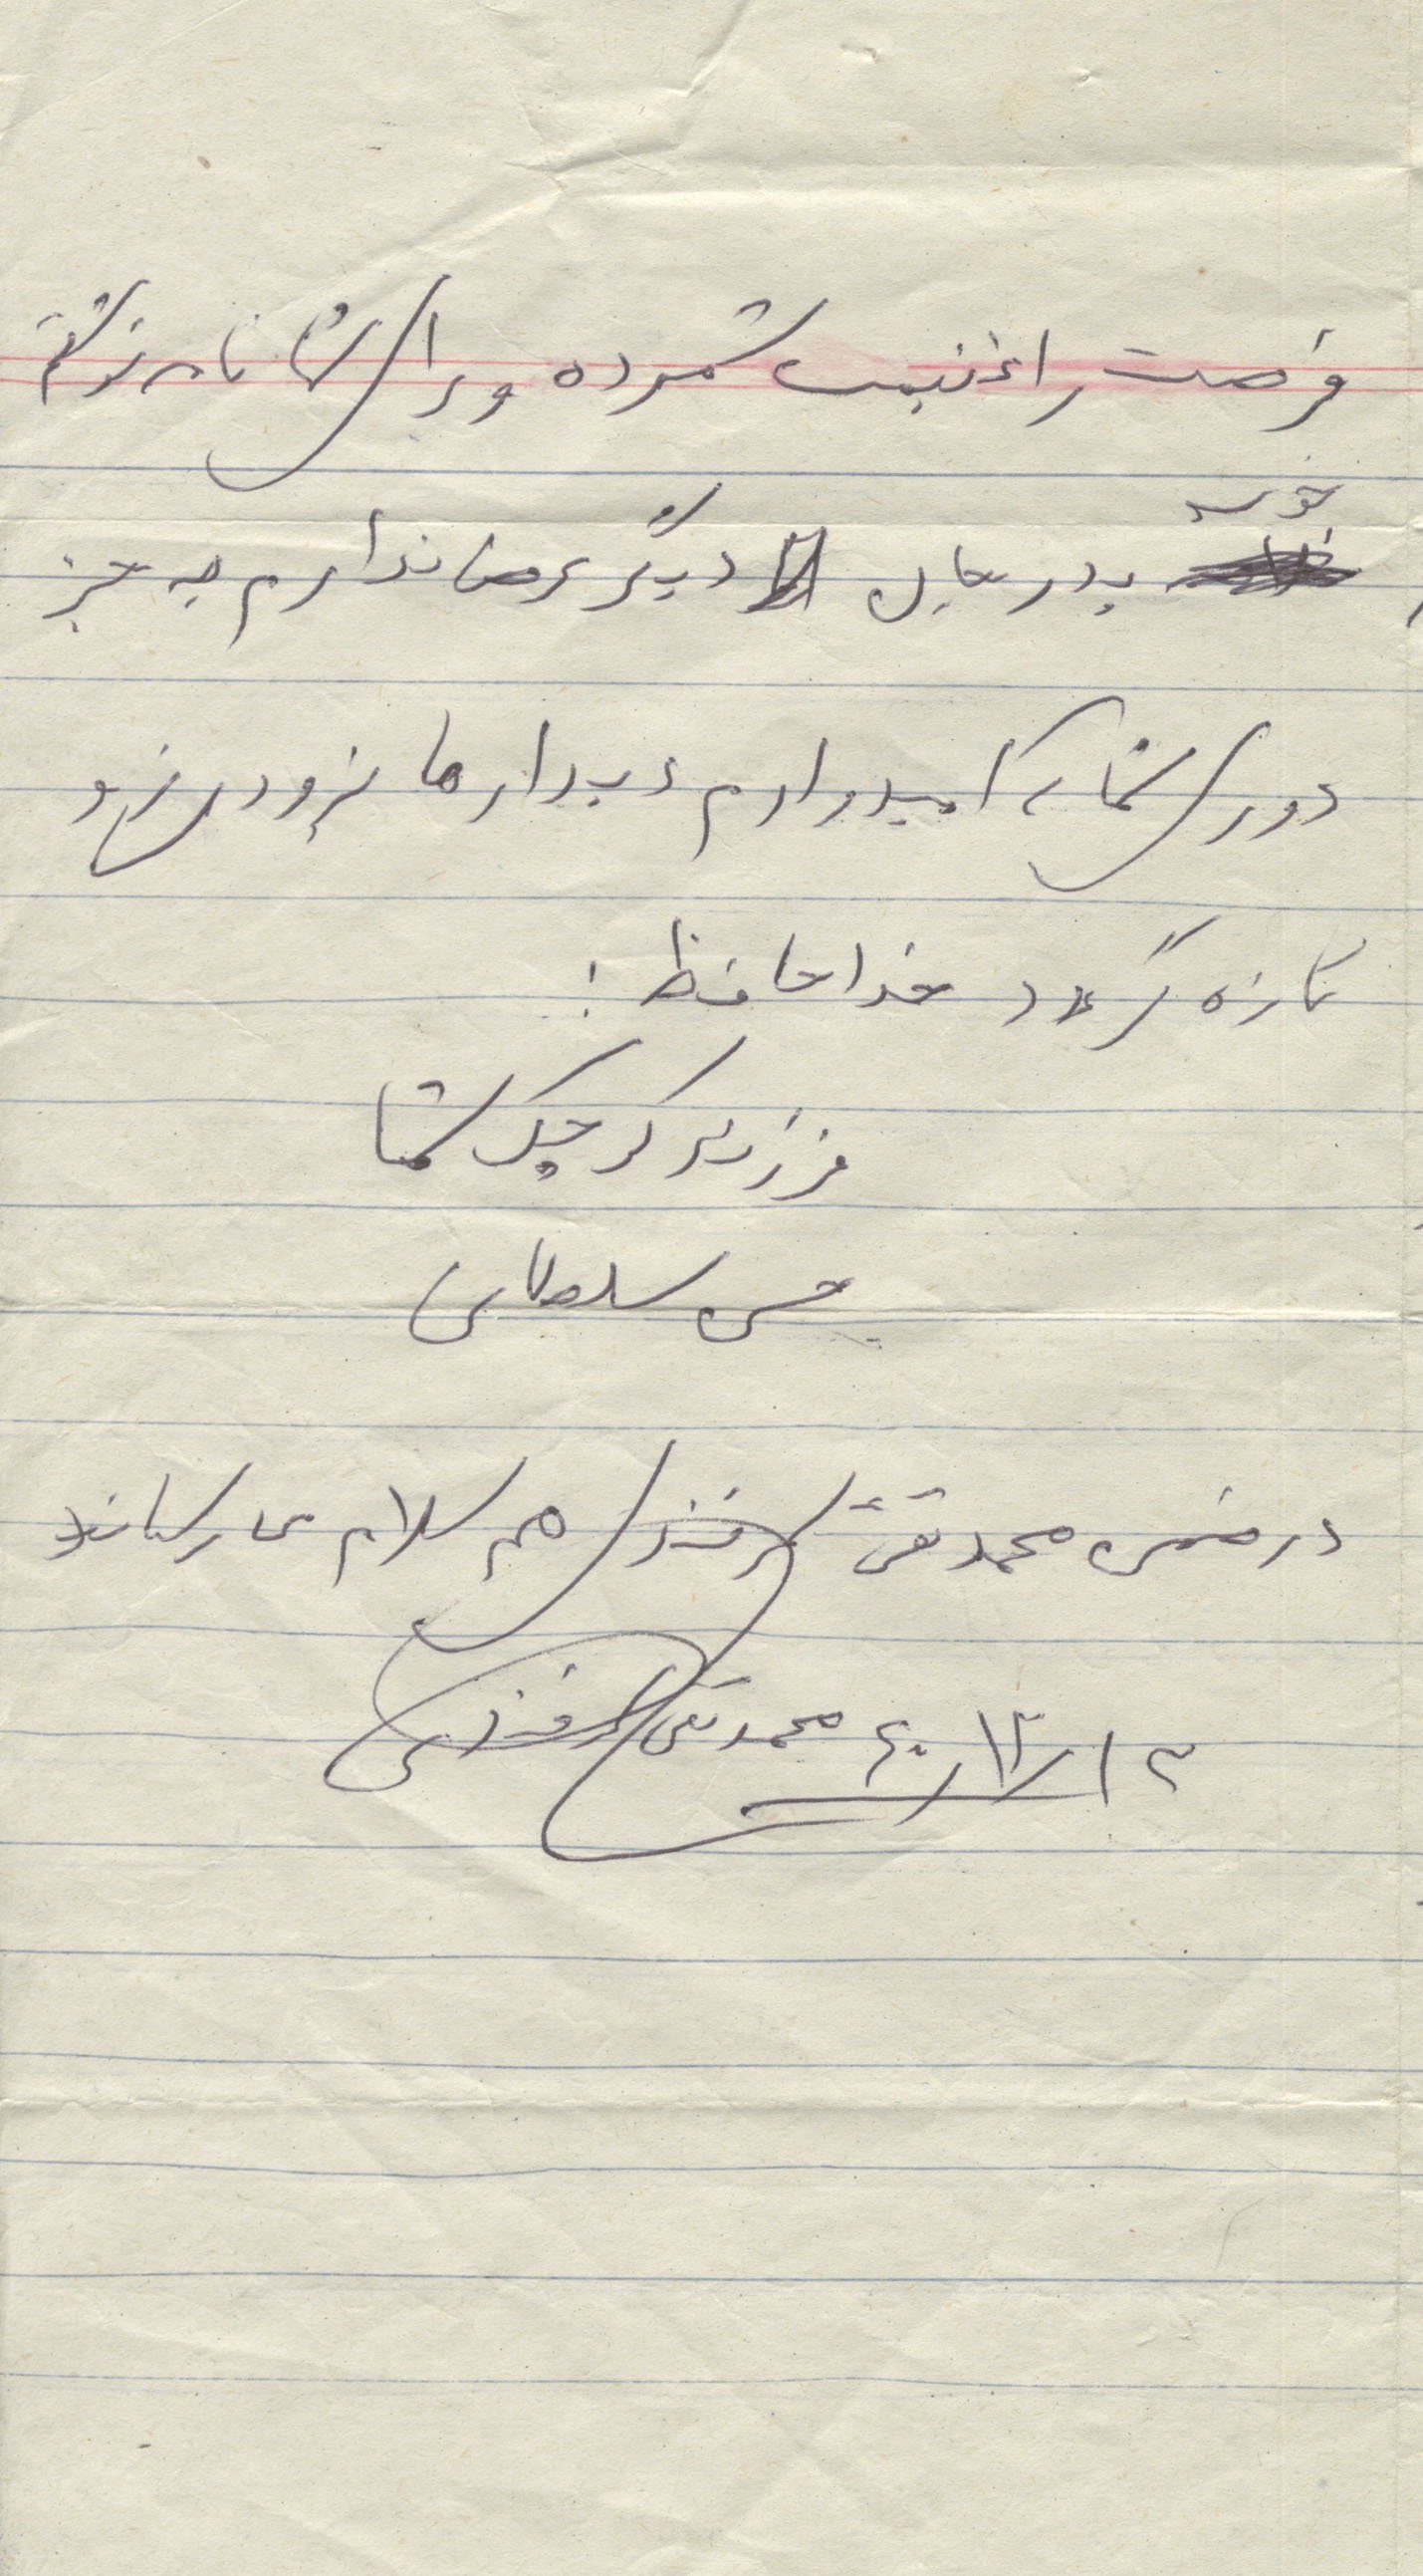 فرصت را غنیمت شمرده و برای شما نامه نوشتم
خوب پدر جان دیگر عرضی ندارم به جز
دوری شما که امیدوارم دیدارها بزودی زود
تازه گردد خداحافظ !
فرزند کوچک شما
حسن سلطانی
در ضمن محمدتقی هم سلام می‌رساند
محمدتقی